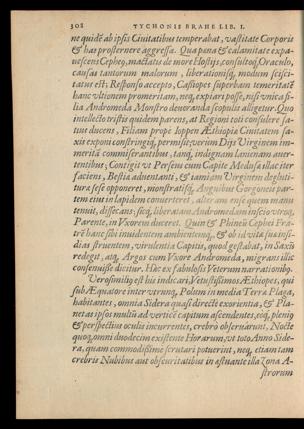 308 TYCHONIS BRAHE LIB. I.
ne quidē ab ipsis Ciuitatibus temperabat, vastitate Corporis
& has prosternere aggressa. Qua pœna & calamitate expa-
uescens Cepheꝰ, mactatis de more Hostijs, consultoq́; Oraculo,
causas tantorum malorum, liberationisq́;, modum scisci-
tatus est; Responso accepto, Cassiopes superbam temeritatē
hanc vltionem promeritam, neq́; expiari posse, nisi vnica fi-
lia Andromeda Monstro deuoranda scopulis alligetur. Quo
intellecto tristis quidem parens, at Regioni toti consulere sa-
tius ducens, Filiam prope Ioppen Æthiopiæ Ciuitatem sa-
xis exponi constringiq́; permisit: verùm Dijs Virginem im-
meritā commiserantibus, tanq́; indignam Lanienam auer-
tentibus; Contigit vt Perseus cum Capite Medusæ illac iter
faciens, Bestiæ aduentanti, & tamiam Virginem degluti-
turæ sese opponeret, monstratisq́; Anguibus Gorgoneis par-
tem eius in lapidem conuerteret, alteram ense quem manu
tenuit, dissecans: sicq́; liberatam Andromedam inscio vtroq́;
Parente, in Vxorem duceret. Quin & Phineū Cephei Fra-
trē hanc sibi inuidentem ambientemq́;, & ob id vitæ suæ insi-
dias struentem, virulentia Capitis, quod gestabat, in Saxū
redegit, atq́; Argos cum Vxore Andromeda, migrans illic
consenuisse dicitur. Hæc ex fabulosis Veterum narrationibꝰ.
Verosimile est his indicari, Vetustissimos Æthiopes, qui
sub Æquatore inter vtrumq́; Polum in media Terræ Plaga,
habitantes, omnia Sidera quasi directe exorientia, & Pla-
netas ipsos multū ad verticē capitum ascendentes, eoq́; plenio
& perspectius oculis incurrentes, crebrò obseruârunt, Nocte
quoq́; omni duodecim existente Horarum, vt toto Anno Side-
ra, quam commodissimè scrutari potuerint, neq́; etiam tam
crebris Nubibus aut obscuritatibus in æstuante illa Zona A-
strorum